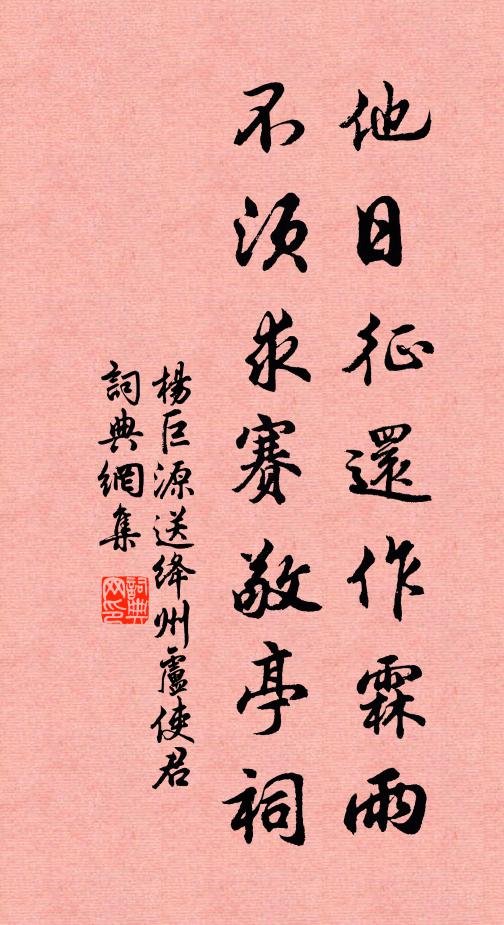 他日征還作霖雨
不須求賽敬亭祠
楊巨源送絳州盧使君
詞典網集
詞典網印